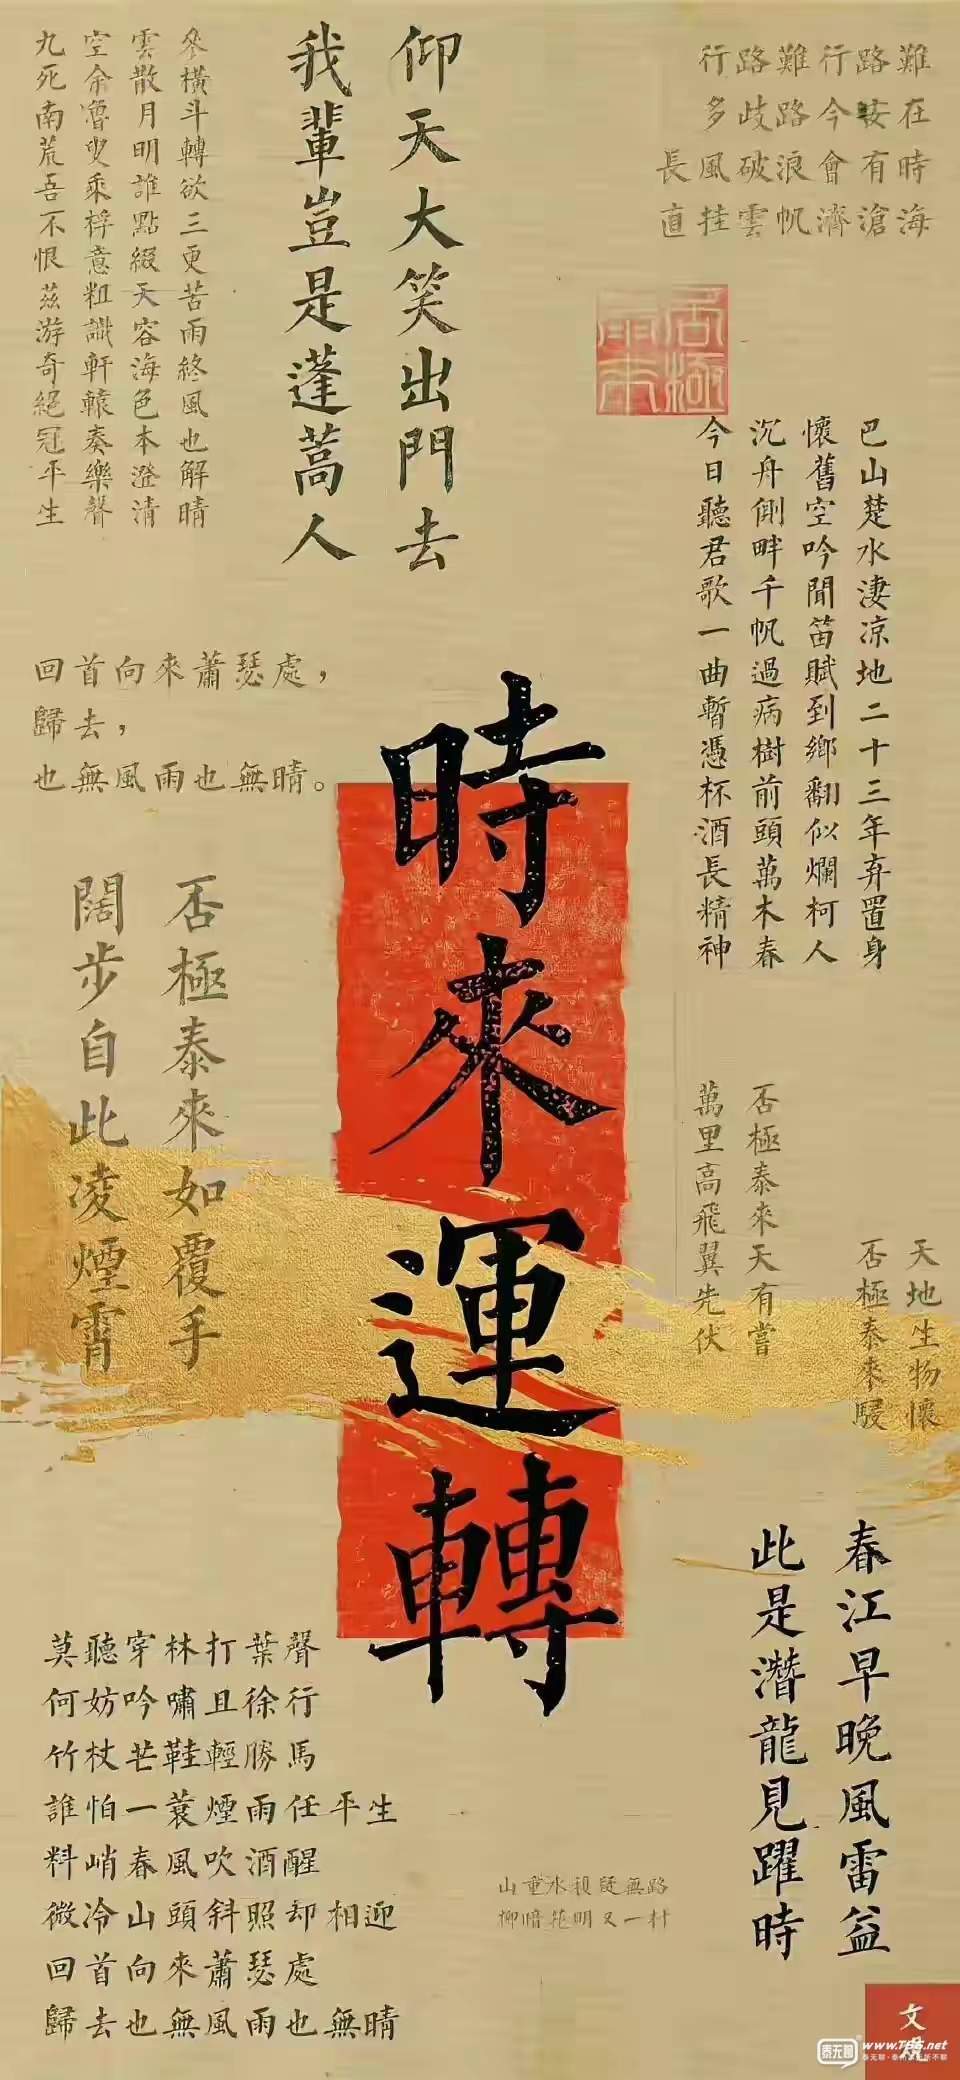 行路難行路難
多歧路今安在
長風破浪會有時
直挂雲帆濟滄海
仰天大笑出門去
我輩豈是蓬蒿人
參橫斗轉欲三更苦雨終風也解晴
雲散月明誰點綴天容海色本澄清
空余魯叟乘桴意粗識軒轅奏樂聲
九死南荒吾不恨茲游奇絕冠平生
巴山楚水淒凉地二十三年弃置身
懷舊空吟聞笛賦到鄉翻似爛柯人
沉舟側畔千帆過病樹前頭萬木春
今日聽君歌一曲暫憑杯酒長精神
回首向來蕭瑟處，
歸去，
也無風雨也無晴。
時來運轉
否極泰來如覆手
闊步自此凌煙霄
否極泰來天有嘗
萬里高飛翼先伏
天地生物懷
否極泰來駸
春江早晚風雷益
此是潛龍見躍時
莫聽穿林打葉聲
何妨吟嘯且徐行
竹杖芒鞋輕勝馬
誰怕一蓑煙雨任平生
料峭春風吹酒醒
微冷山頭斜照却相迎
回首向來蕭瑟處
歸去也無風雨也無晴
山重水複疑無路
柳暗花明又一村
文
泰无聊